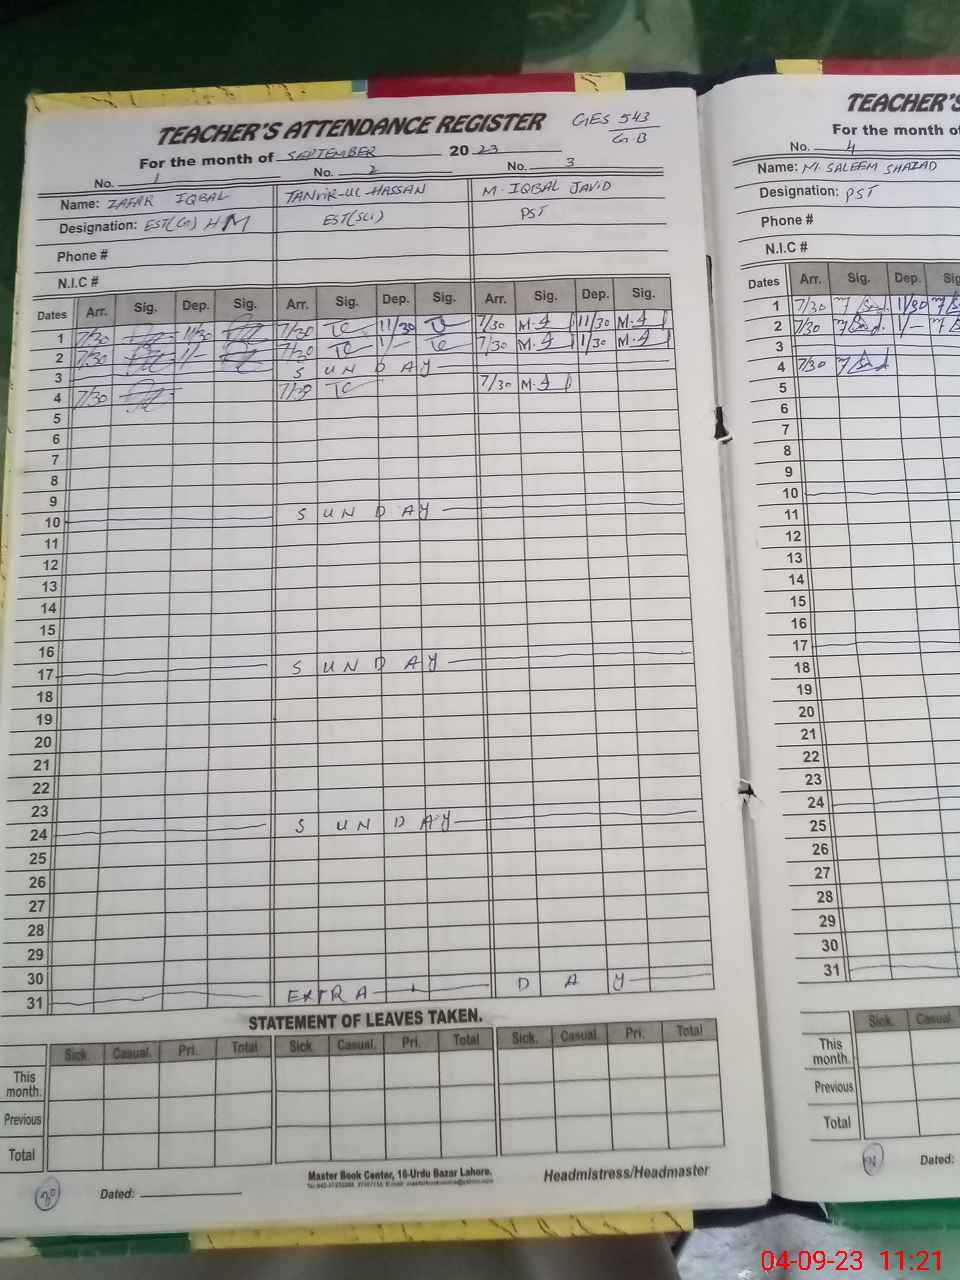 TEACHER'S ATTENDANCE REGISTER GES 543
G.B
For the month of SEPTEMBER 2023
No. 1 No. 2 No. 3
Name: ZAFAR IQBAL TANVIR-UL-HASSAN M. IQBAL JAVID
Designation: EST(G) HM EST(SCI) PST
Phone #
N.I.C #
Dates Arr. Sig. Dep. Sig. Arr. Sig. Dep. Sig. Arr. Sig. Dep. Sig.
1 7/30 11/30 7/30 11/30 7/30 11/30
2 7/30 1/- 7/30 1/- 7/30 1/30
3 SUNDAY
4 7/30 7/30 7/30
5
6
7
8
9
10 SUNDAY
11
12
13
14
15
16
17 SUNDAY
18
19
20
21
22
23
24 SUNDAY
25
26
27
28
29
30
31 EXTRA DAY
STATEMENT OF LEAVES TAKEN.
Sick. Casual. Pri. Total Sick. Casual. Pri. Total Sick. Casual. Pri. Total
This month.
Previous
Total
30 Dated:
Master Book Center, 16-Urdu Bazar Lahore.
Headmistress/Headmaster
TEACHER'S
For the month of
No. 4
Name: M. SALEEM SHAZAD
Designation: PST
Phone #
N.I.C #
Dates Arr. Sig. Dep. Sig
1 7/30 11/30
2 7/30 1/-
3
4 7/30
5
6
7
8
9
10
11
12
13
14
15
16
17
18
19
20
21
22
23
24
25
26
27
28
29
30
31
Sick. Casual.
This month.
Previous
Total
Dated:
04-09-23 11:21